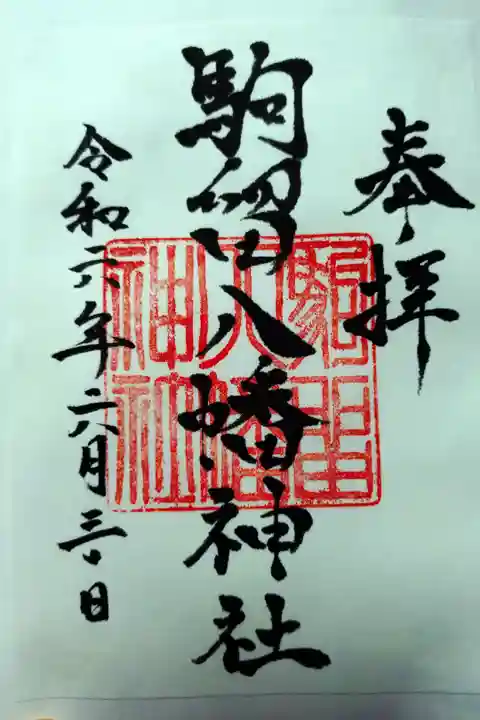 奉拝
駒留八幡神社
令和六年六月三日
駒留
八幡
神社